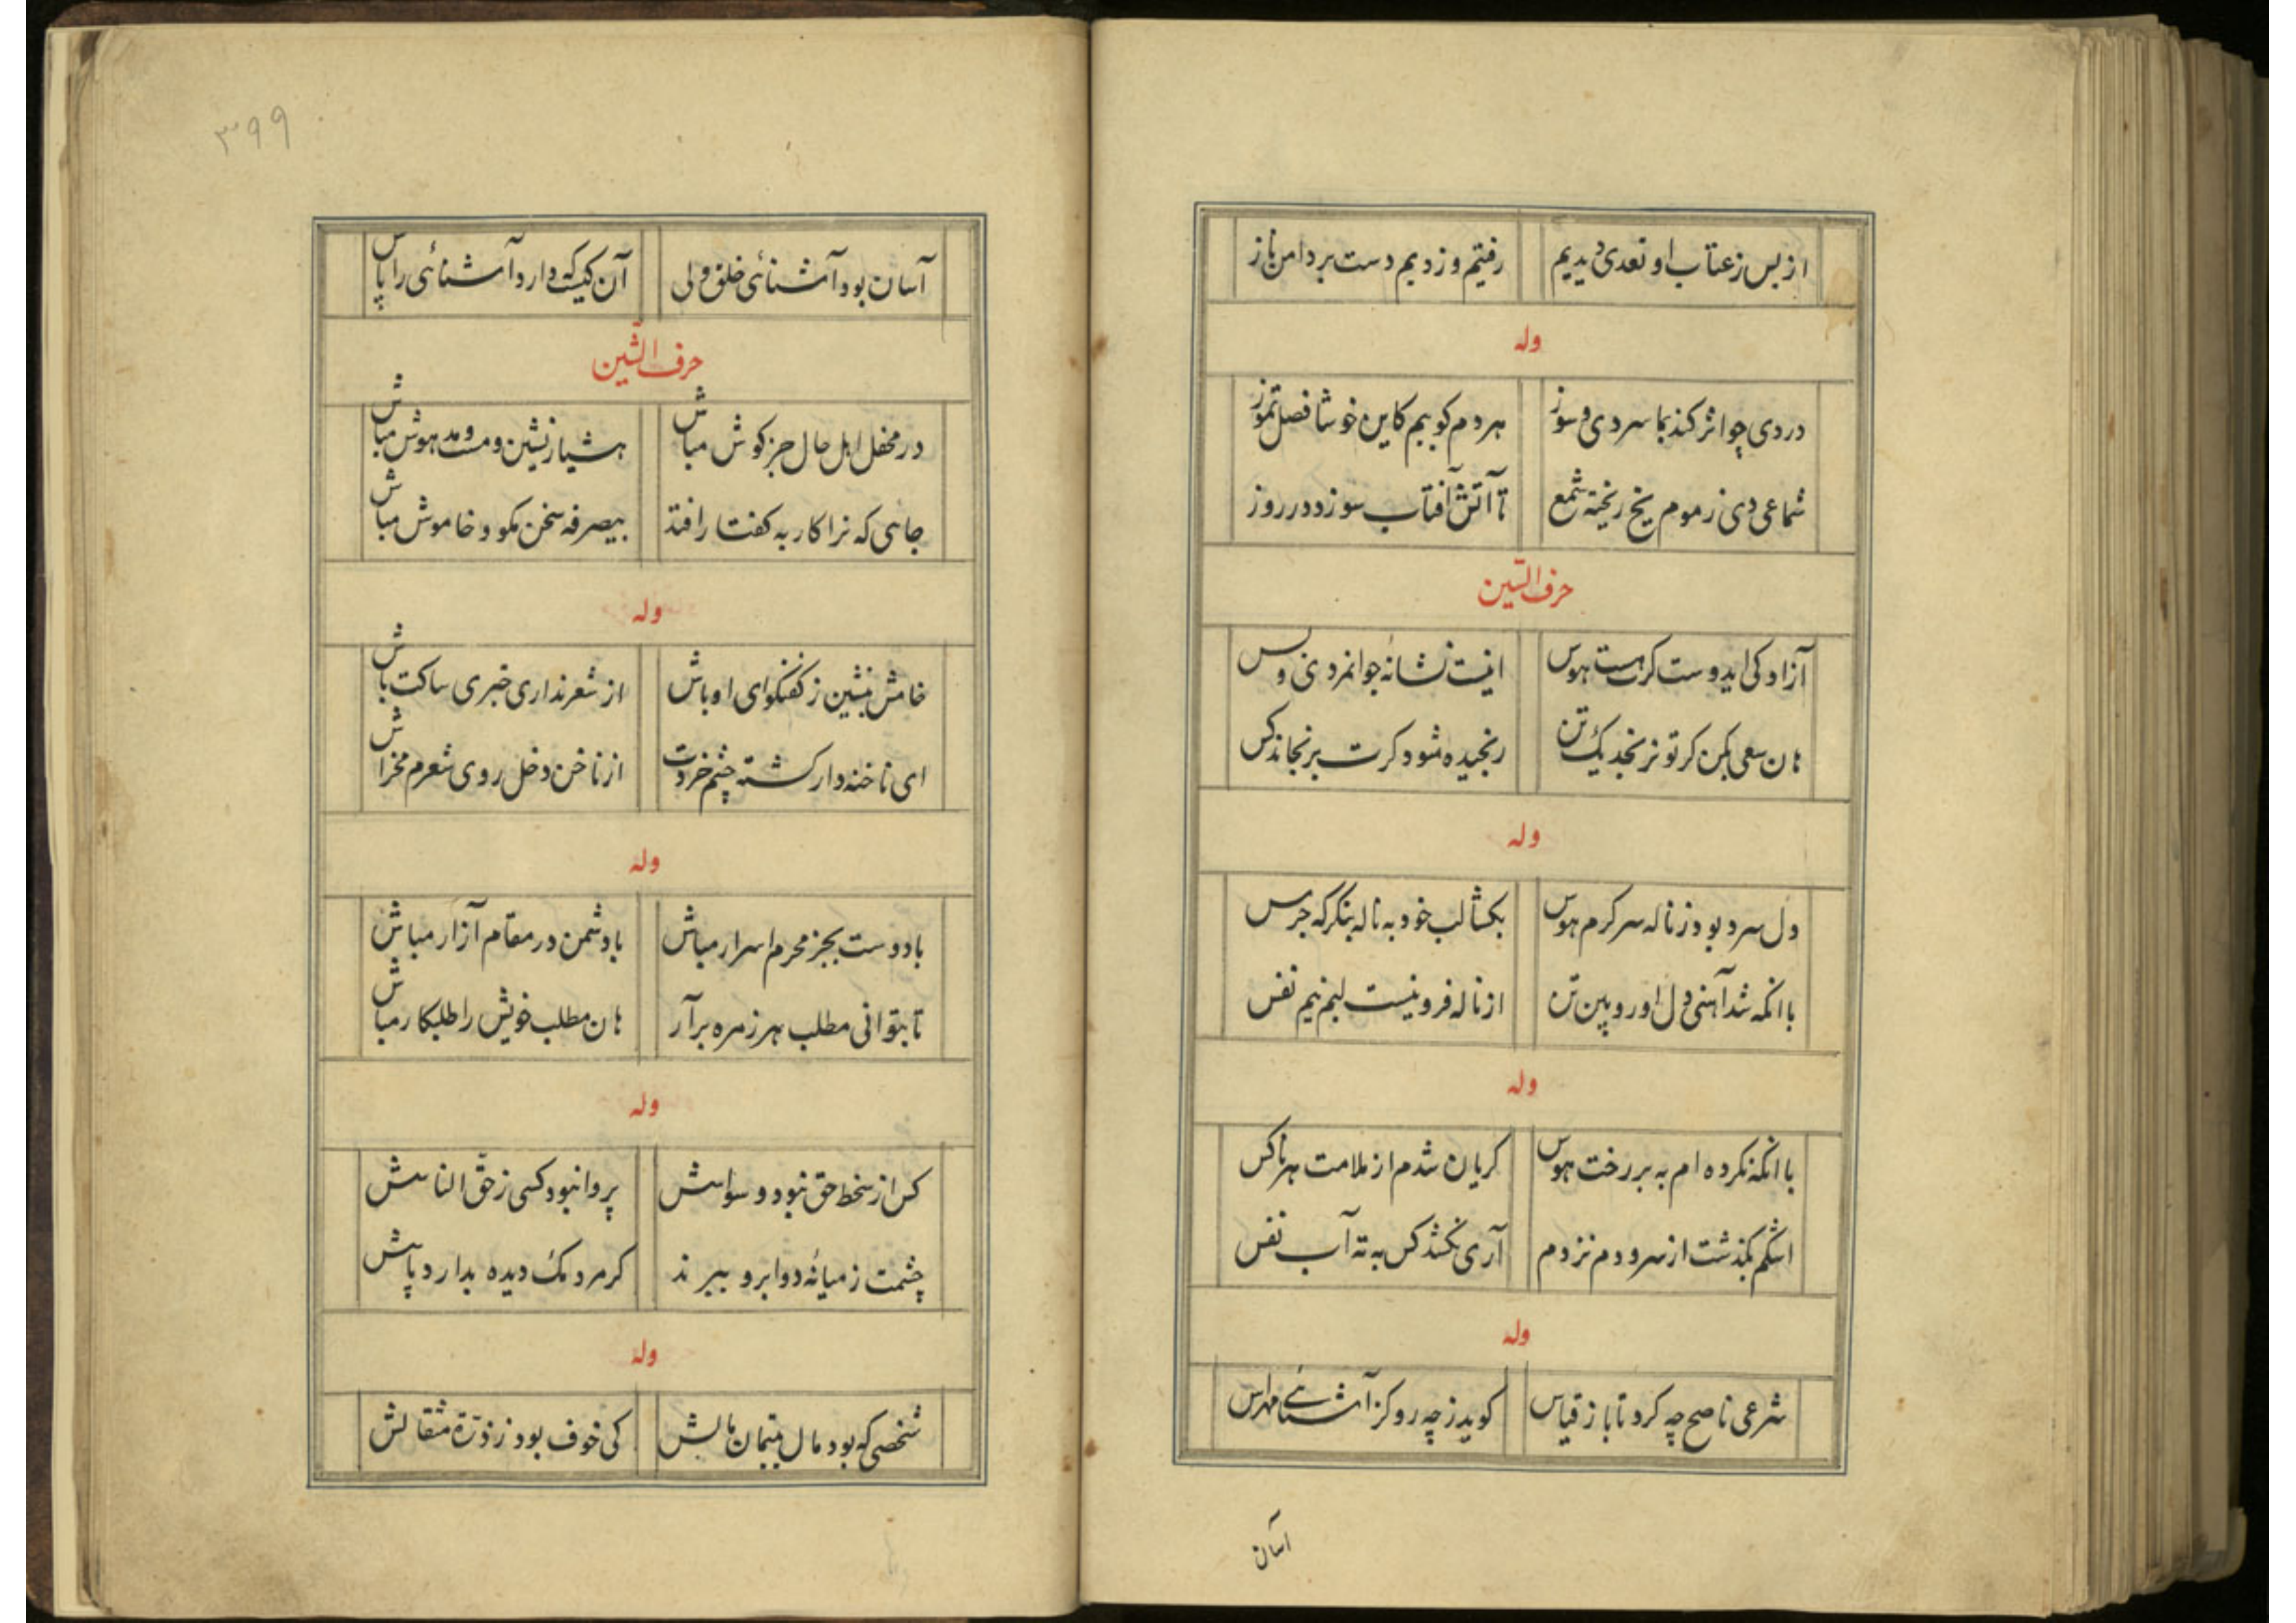 از بس ز عتاب او تعدی دیدیم رفتیم و زدیم دست بر دامن ناز
وله
در دی چو اثر کند بما سردی و سوز هر دم کوییم کاین خوشا فصل تموز
شماعی دی ز موم یخ ریخته شمع تا آتش آفتاب سوزد در روز
حرف السّین
آزادکی ایدوست کرت هست هوس اینست نشانهٔ جوانمردی و بس
هان سعی بکن کز تو نرنجد یک تن رنجیده مشو کرت برنجاند کس
وله
دل سرد بود ز ناله سرکرم هوس بکشا لب خود به ناله بنکر که جرس
با انکه شد آهنی دل او رویین تن از ناله فرو نبست لب نیم نفس
وله
با انکه نکرده ام به بر رخت هوس کریان شدم از ملامت هر ناکس
اشکم بکذشت از سر و دم نزدم آری نکشد کس به ته آب نفس
وله
شرعی ناصح چه کرد تا باز قیاس کوید ز چه رو کز آشنائی مهراس
آسان
۳۹۹
آسان بود آشنائی خلق ولی آن کیست که دارد آشنائی را پاس
حرف الشّین
در محفل اهل حال جز کوش مباش هشیار نشین و مست و مدهوش مباش
جائی که ترا کار به کفتار افتد بیصرفه سخن مکو و خاموش مباش
وله
خامش بنشین ز کفتکو ای اوباش از شعر نداری خبری ساکت باش
ای ناخنه دار کشته چشم خردت از ناخن دخل روی شعرم مخراش
وله
با دوست بجز محرم اسرار مباش با دشمن در مقام آزار مباش
تا بتوانی مطلب هر زمره برآر هان مطلب خویش را طلبکار مباش
وله
کس از سخط حق نبود وسواسش پروا نبود کسی ز حقّ الناسش
چشمت ز میانهٔ دو ابرو ببرند کر مردمک دیده بدارد پاسش
وله
شخصی که بود مال یتیمان مالش کی خوف بود ز ذرّهٔ مثقالش